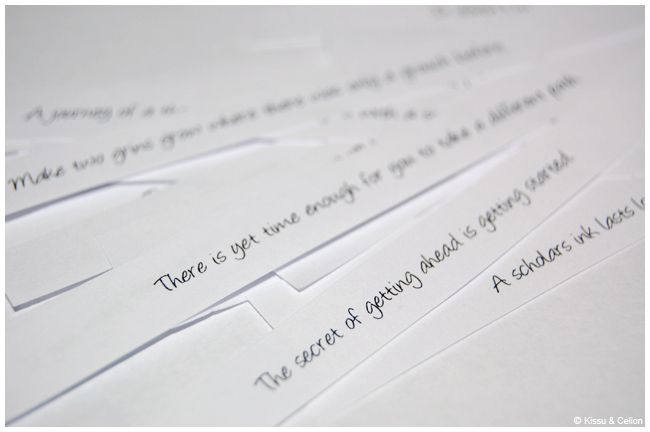 A journey of a
Make two grins grow where there was only a grouch before.
There is yet time enough for you to take a different path.
The secret of getting ahead is getting started.
A scholars ink lasts lo
© Kissu & Celion